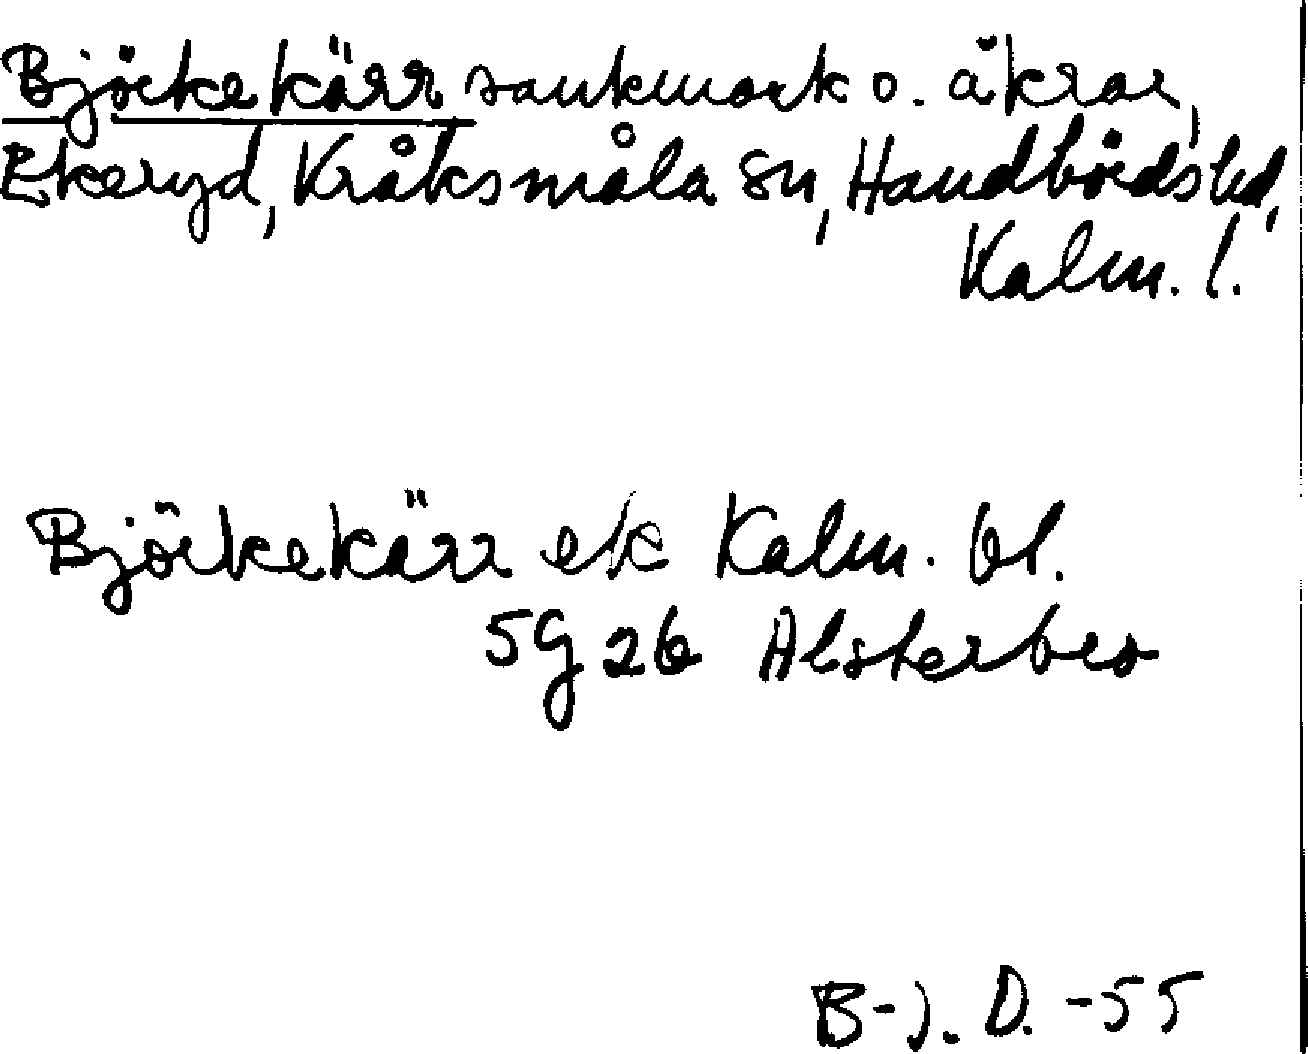 Björkekärr sankmark o. åkrar,
Ekeryd, Kråksmåla sn, Handbörds hd,
Kalm. l.
Björkekärr ek Kalm. bl.
5G 26 Alsterbro
B-J. D. -55